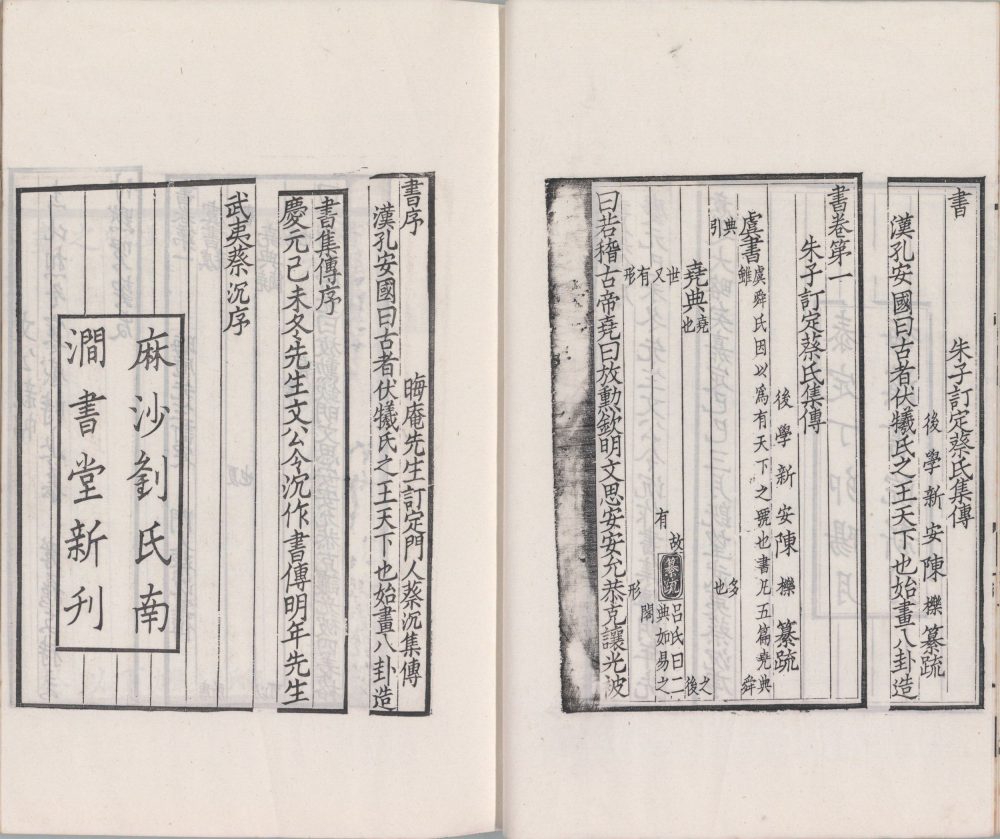 書　朱子訂定蔡氏集傳
後學新安陳櫟纂疏
漢孔安國曰古者伏犧氏之王天下也始畫八卦造
書卷第一
朱子訂定蔡氏集傳
後學新安陳櫟纂疏
虞書
虞舜氏因以爲有天下之號也書凡五篇堯典
雖
舜
典
引
多
也
堯典
堯
也
世
又
有
形
故
有
纂疏
呂氏曰二
典如易之
之
後
形
曰若稽古帝堯曰放勳欽明文思安安允恭克讓光被
書序
晦庵先生訂定門人蔡沉集傳
漢孔安國曰古者伏犧氏之王天下也始畫八卦造
書集傳序
慶元己未冬先生文公令沉作書傳明年先生
武夷蔡沉序
麻沙劉氏南
澗書堂新刊